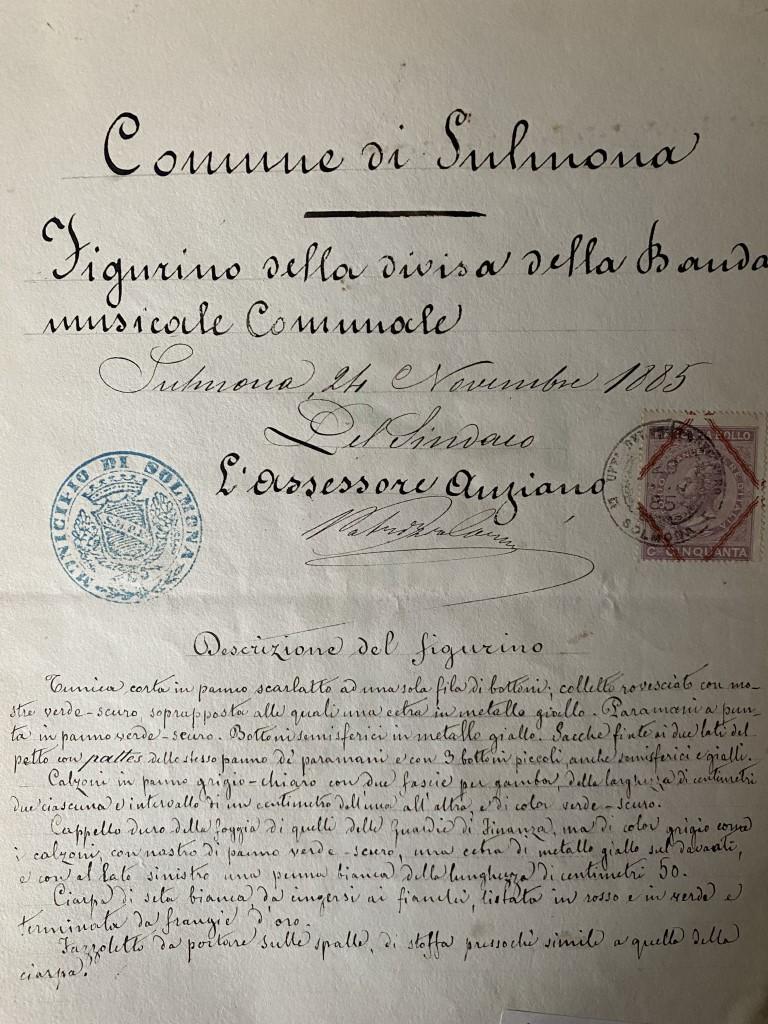 Comune di Sulmona
Figurino della divisa della Banda
musicale Comunale
Sulmona, 24 Novembre 1885
Del Sindaco
L'assessore Anziano
MUNICIPIO DI SOLMONA
SOLMONA
BOLLO
C. CINQUANTA
Descrizione del figurino
Tunica corta in panno scarlatto ad una sola fila di bottoni; colletto rovesciato con mo-
stre verde-scuro, soprapposta alle quali una cetra in metallo giallo. Paramani a pun-
ta in panno verde-scuro. Bottoni semisferici in metallo giallo. Sacche finte ai due lati del
petto con pattes dello stesso panno de' paramani e con 3 bottoni piccoli, anche semisferici e gialli.
Calzoni in panno grigio-chiaro con due fascie per gamba, della larghezza di centimetri
due ciascuna e intervallo di un centimetro dall'una all'altra, e di color verde-scuro.
Cappello duro della foggia di quelle delle Guardie di Finanza, ma di color grigio come
i calzoni, con nastro di panno verde-scuro, una cetra di metallo giallo sul davanti,
e con al lato sinistro una penna bianca della lunghezza di centimetri 50.
Ciarpa di seta bianca da cingersi ai fianchi, listata in rosso e in verde e
terminata da frangie d'oro.
Fazzoletto da portare sulle spalle, di stoffa pressochè simile a quella della
ciarpa."